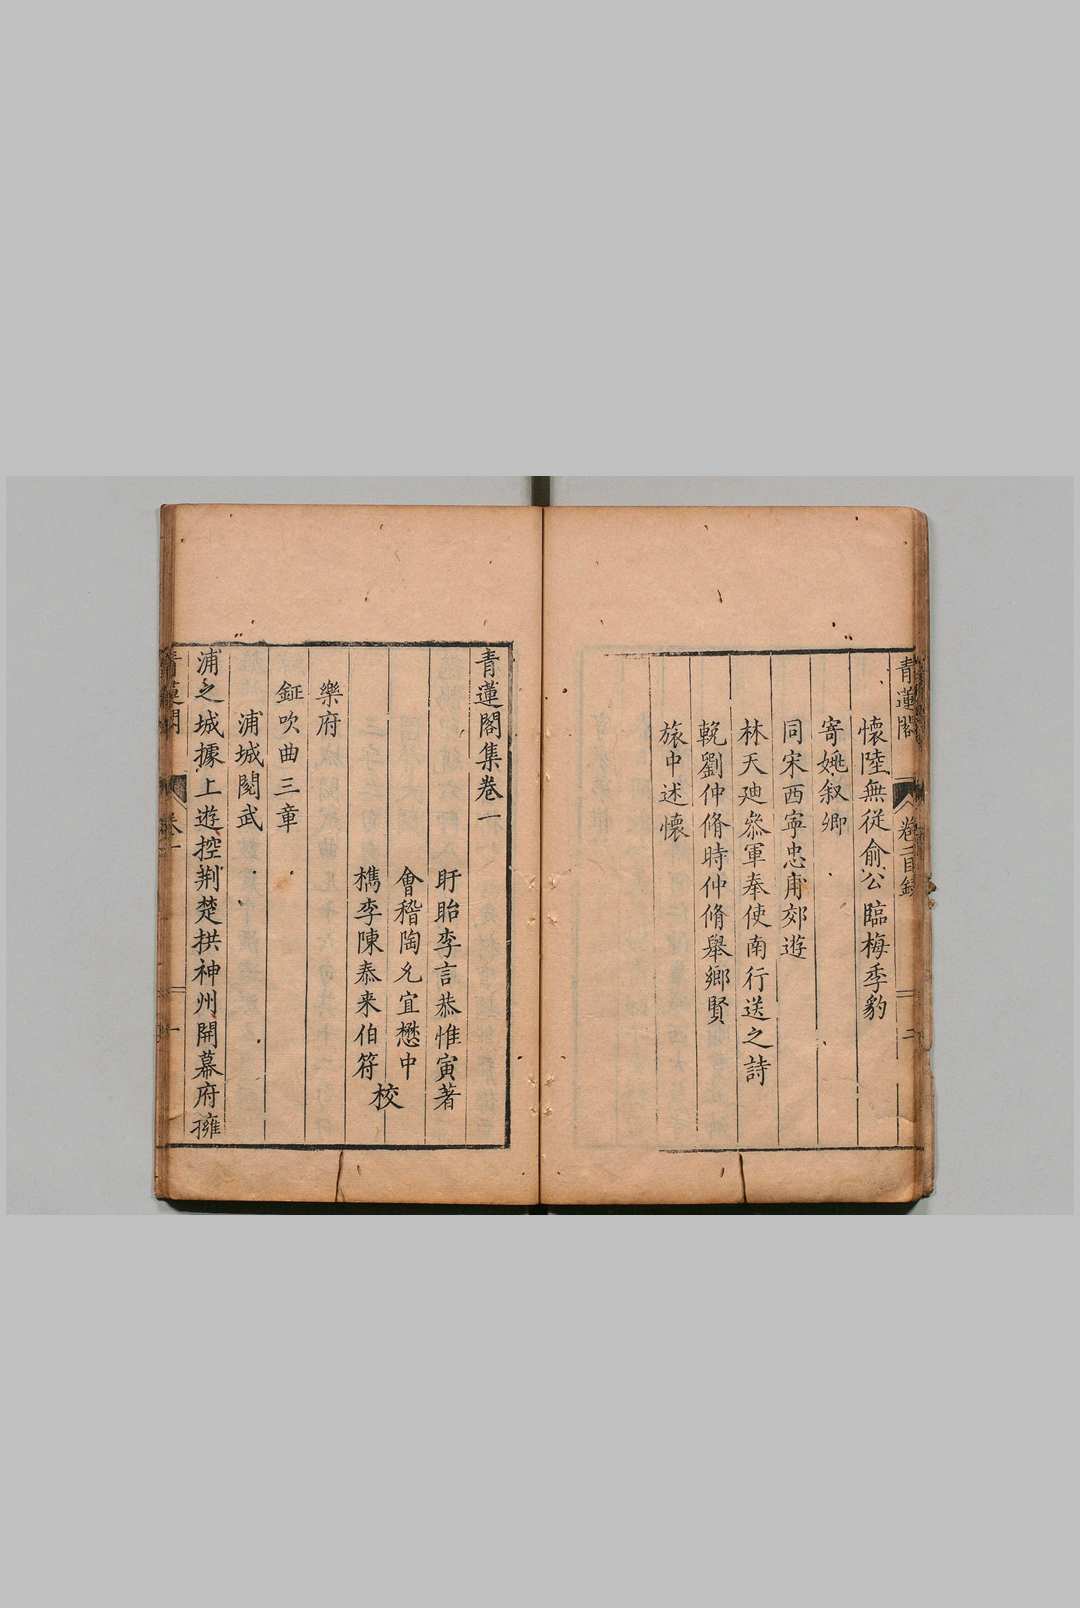 青蓮閣 卷二目錄 二
懷陸無從俞公臨梅季豹
寄姚叙卿
同宋西寧忠甫郊遊
林天廸叅軍奉使南行送之詩
輓劉仲脩時仲脩舉鄉賢
旅中述懷
青蓮閣集卷一
盱眙李言恭惟寅著
會稽陶允宜懋中
檇李陳泰来伯符
校
樂府
鉦吹曲三章
浦城閱武
浦之城據上遊控荆楚拱神州開幕府擁
青蓮閣 卷一 一